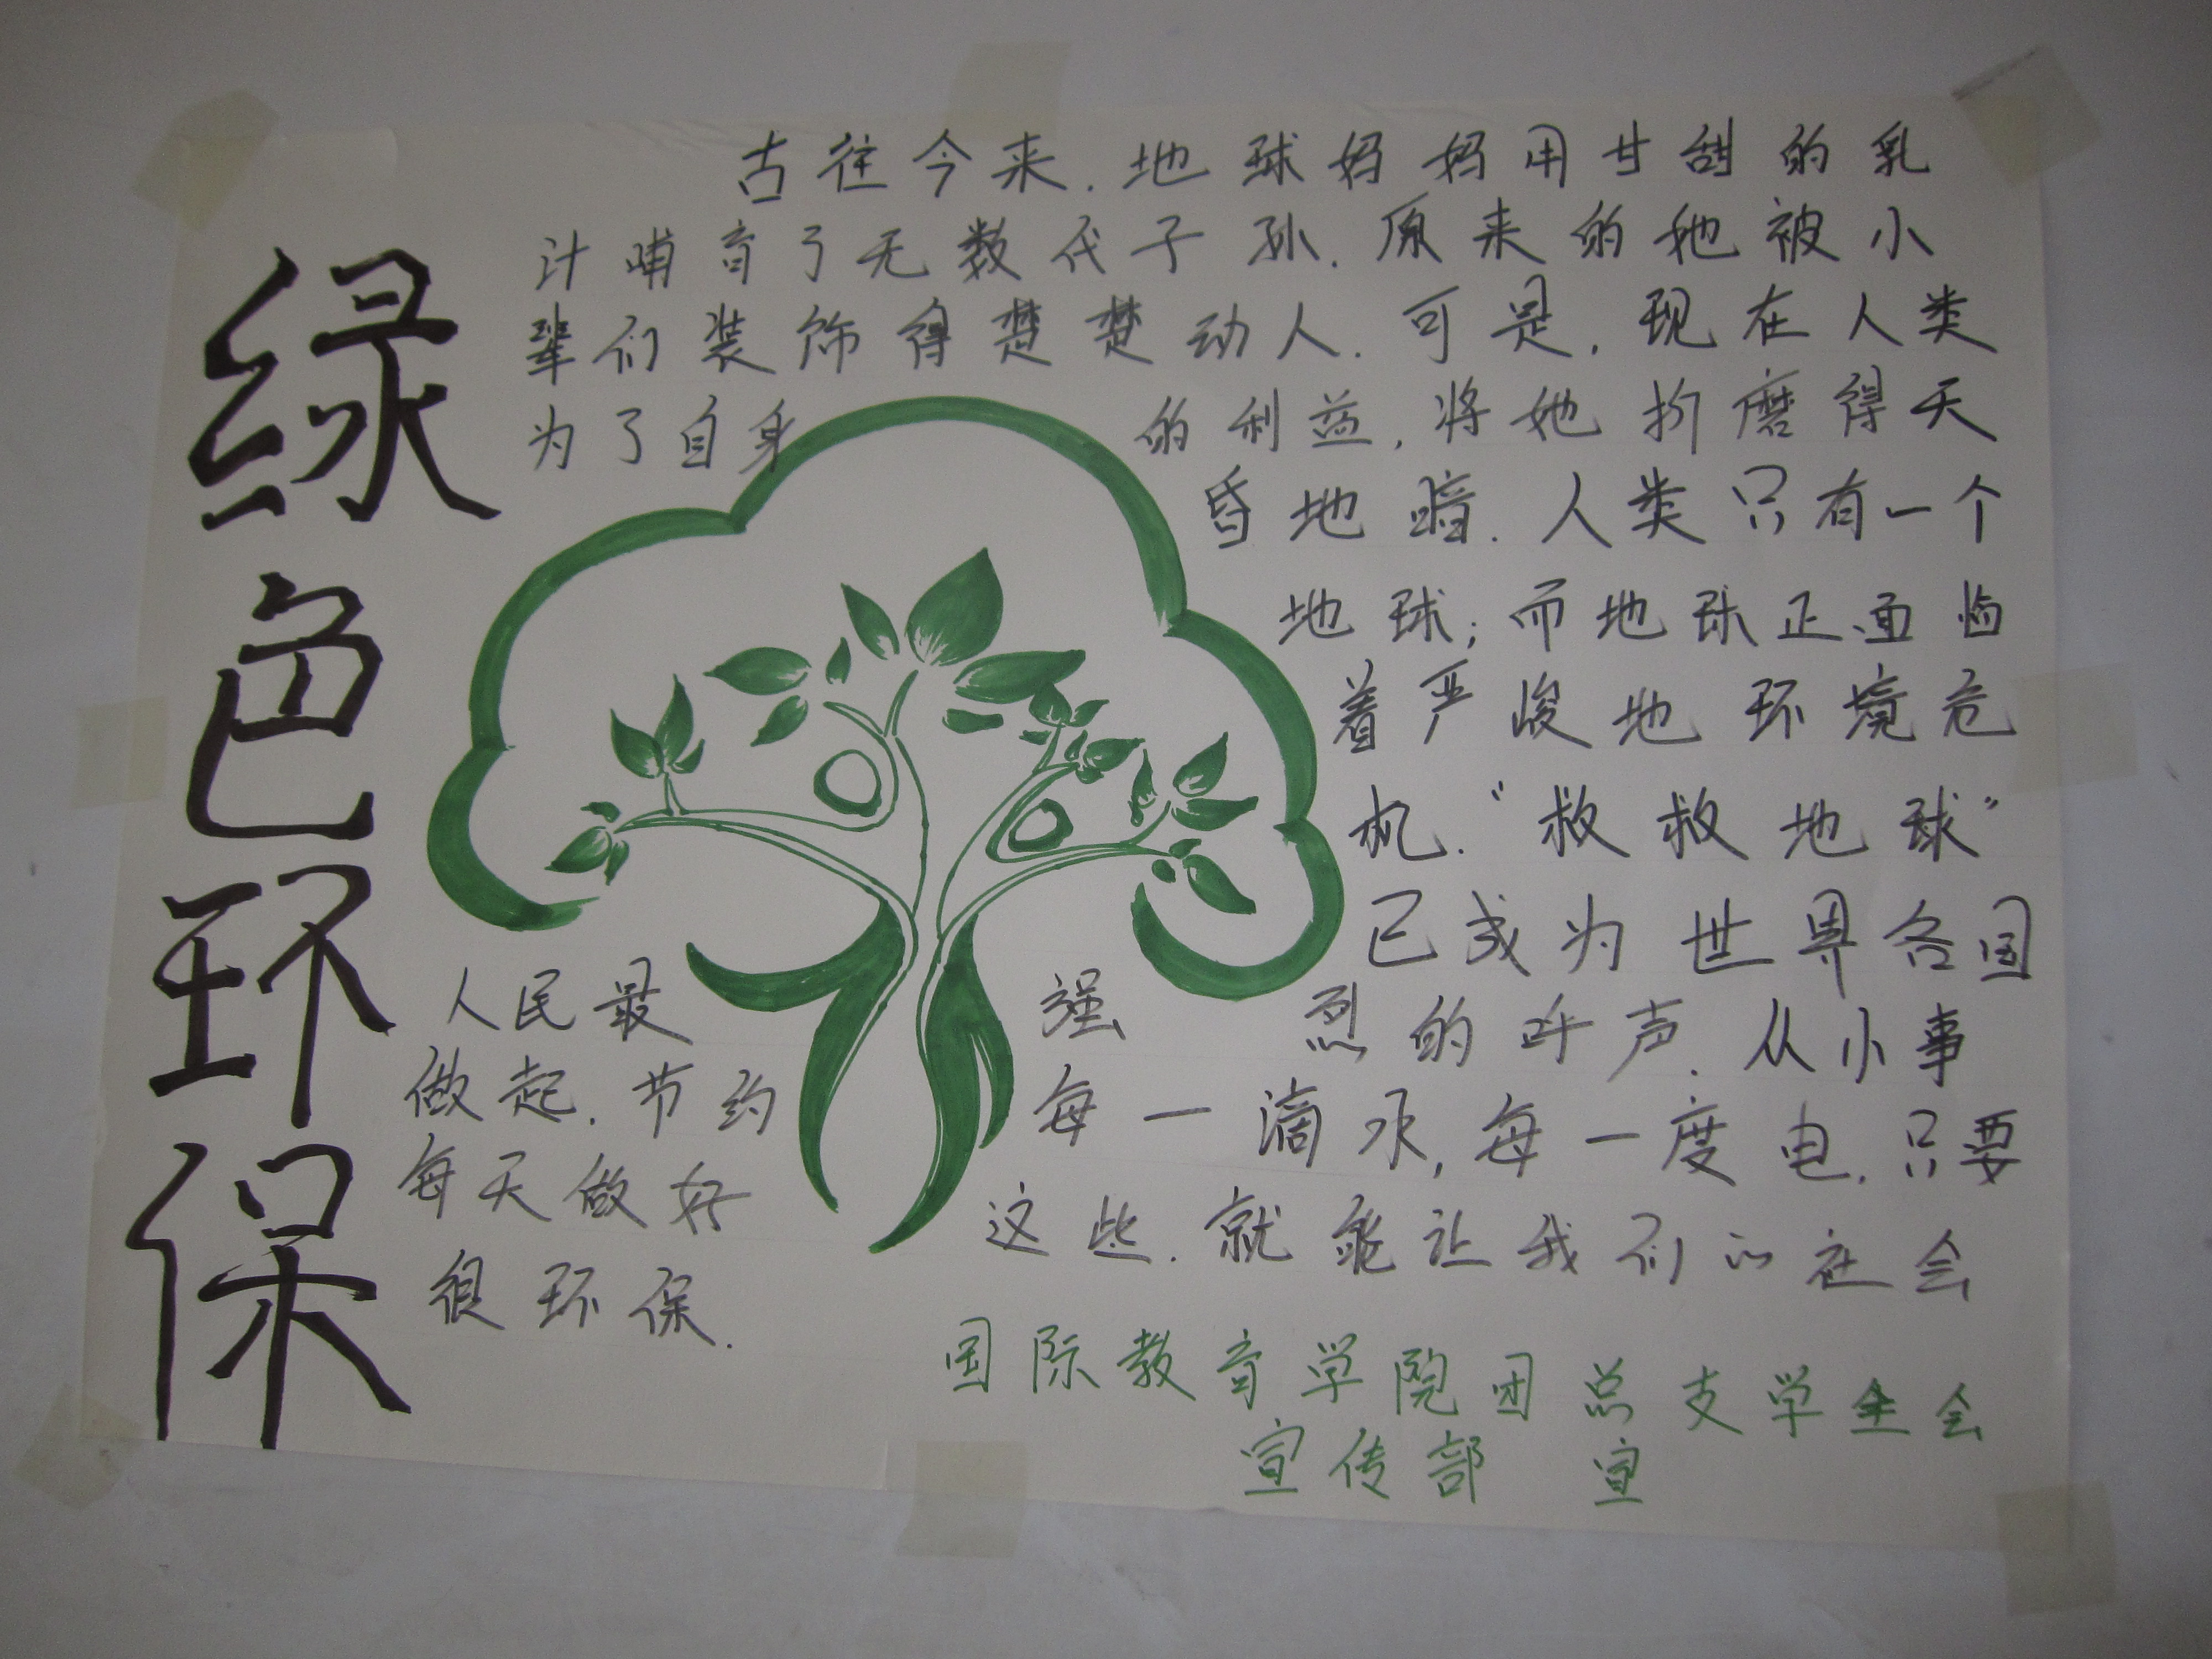 绿色环保
古往今来.地球妈妈用甘甜的乳
汁哺育了无数代子孙.原来的她被小
辈们装饰得楚楚动人.可是.现在人类
为了自身的利益,将她折磨得天
昏地暗.人类只有一个
地球;而地球正面临
着严峻地环境危
机."救救地球"
已成为世界各国
人民最强烈的呼声.从小事
做起.节约每一滴水,每一度电.只要
每天做好这些.就能让我们的社会
很环保.
国际教育学院团总支学生会
宣传部 宣